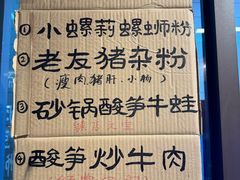 ① 小螺莉螺蛳粉
② 老友猪杂粉
(瘦肉猪肝、小肠)
③ 砂锅酸笋牛蛙
④ 酸笋炒牛肉